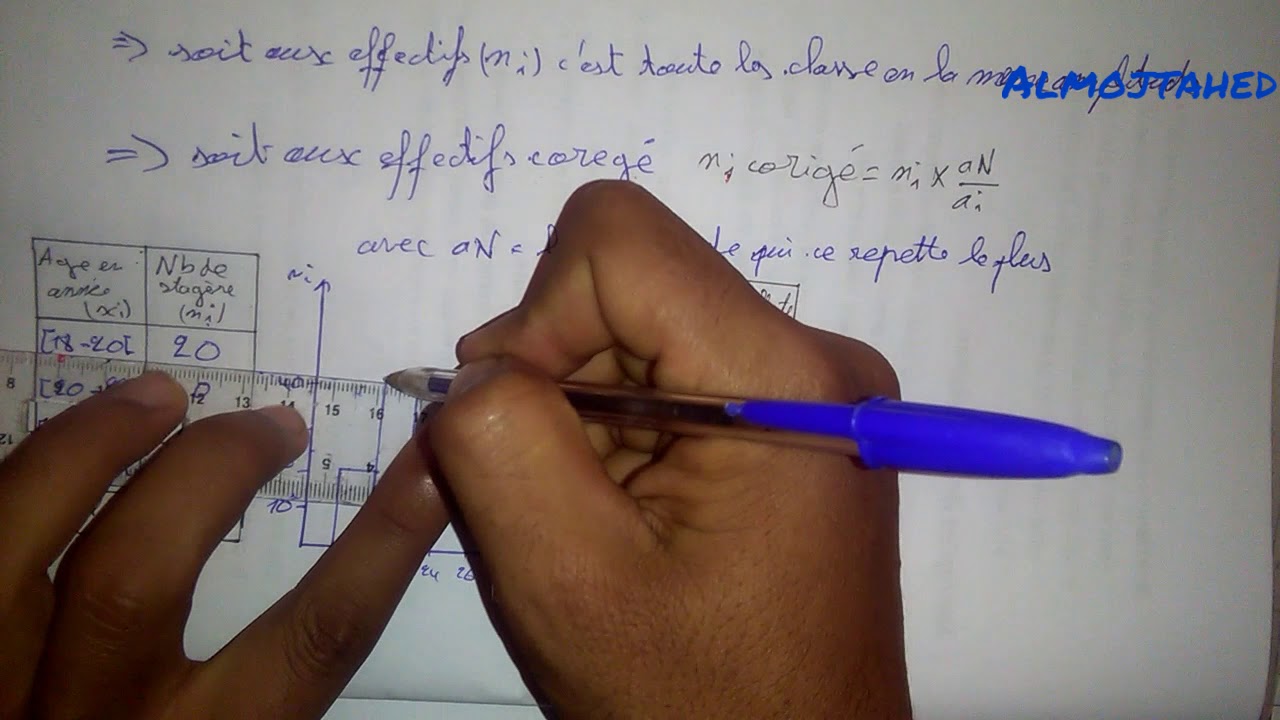 ⇒ soit aux effectifs (ni) c'est toute les classe on la
ALMOJTAHED
⇒ soit aux effectifs coregé ni corigé = ni × aN/ai
avec aN = qui ce repette le plus
Age en année (xi)
Nb de stagère (ni)
[18-20[ 20
[20
ni
40
10
24 26
8 12 13 14 15 16
12 5 4